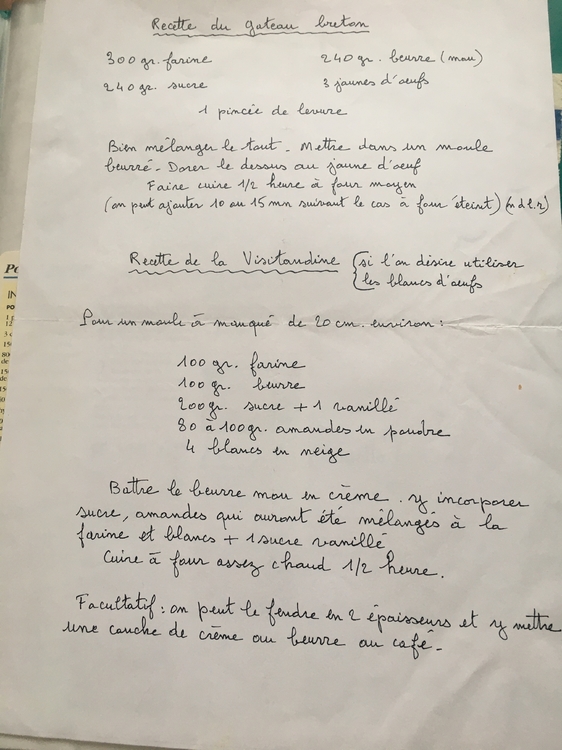 Recette du gateau breton
300 gr. farine 240 gr. beurre (mou)
240 gr. sucre 3 jaunes d'oeufs
1 pincée de levure
Bien mélanger le tout - Mettre dans un moule
beurré - Dorer le dessus au jaune d'oeuf
Faire cuire 1/2 heure à four moyen
(on peut ajouter 10 ou 15 mn suivant le cas à four éteint) (n d l. r)
Recette de la Visitandine (si l'on désire utiliser
les blancs d'oeufs
Pour un moule à manqué de 20 cm. environ :
100 gr. farine
100 gr. beurre
200 gr. sucre + 1 vanillé
80 à 100 gr. amandes en poudre
4 blancs en neige
Battre le beurre mou en crème. y incorporer
sucre, amandes qui auront été mélangés à la
farine et blancs + 1 sucre vanillé
Cuire à four assez chaud 1/2 heure.
Facultatif : on peut le fendre en 2 épaisseurs et y mettre
une couche de crème au beurre au café -